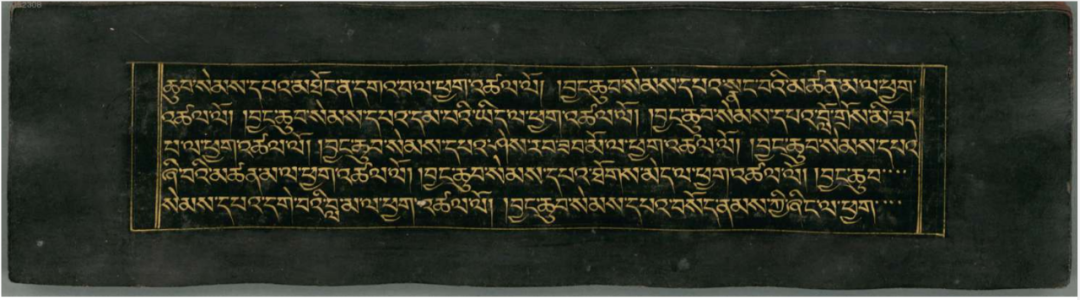 ཆུབ་སེམས་དཔའ་མཐོང་ན་དགའ་བ་ལ་ཕྱག་འཚལ་ལོ། །བྱང་ཆུབ་སེམས་དཔའ་སྣང་བའི་མཚན་མ་ལ་ཕྱག
འཚལ་ལོ། །བྱང་ཆུབ་སེམས་དཔའ་དམ་པའི་ཡིད་ལ་ཕྱག་འཚལ་ལོ། །བྱང་ཆུབ་སེམས་དཔའ་བློ་གྲོས་མི་ཟད
པ་ལ་ཕྱག་འཚལ་ལོ། །བྱང་ཆུབ་སེམས་དཔའ་ཤེས་རབ་ཟབ་མོ་ལ་ཕྱག་འཚལ་ལོ། །བྱང་ཆུབ་སེམས་དཔའ
ཞི་བའི་མཚན་མ་ལ་ཕྱག་འཚལ་ལོ། །བྱང་ཆུབ་སེམས་དཔའ་ཐོགས་མེད་ལ་ཕྱག་འཚལ་ལོ། །བྱང་ཆུབ་་་་
སེམས་དཔའ་དགེ་བའི་བླ་མ་ལ་ཕྱག་འཚལ་ལོ། །བྱང་ཆུབ་སེམས་དཔའ་བསོད་ནམས་ཀྱི་ཞིང་ལ་ཕྱག་་་་